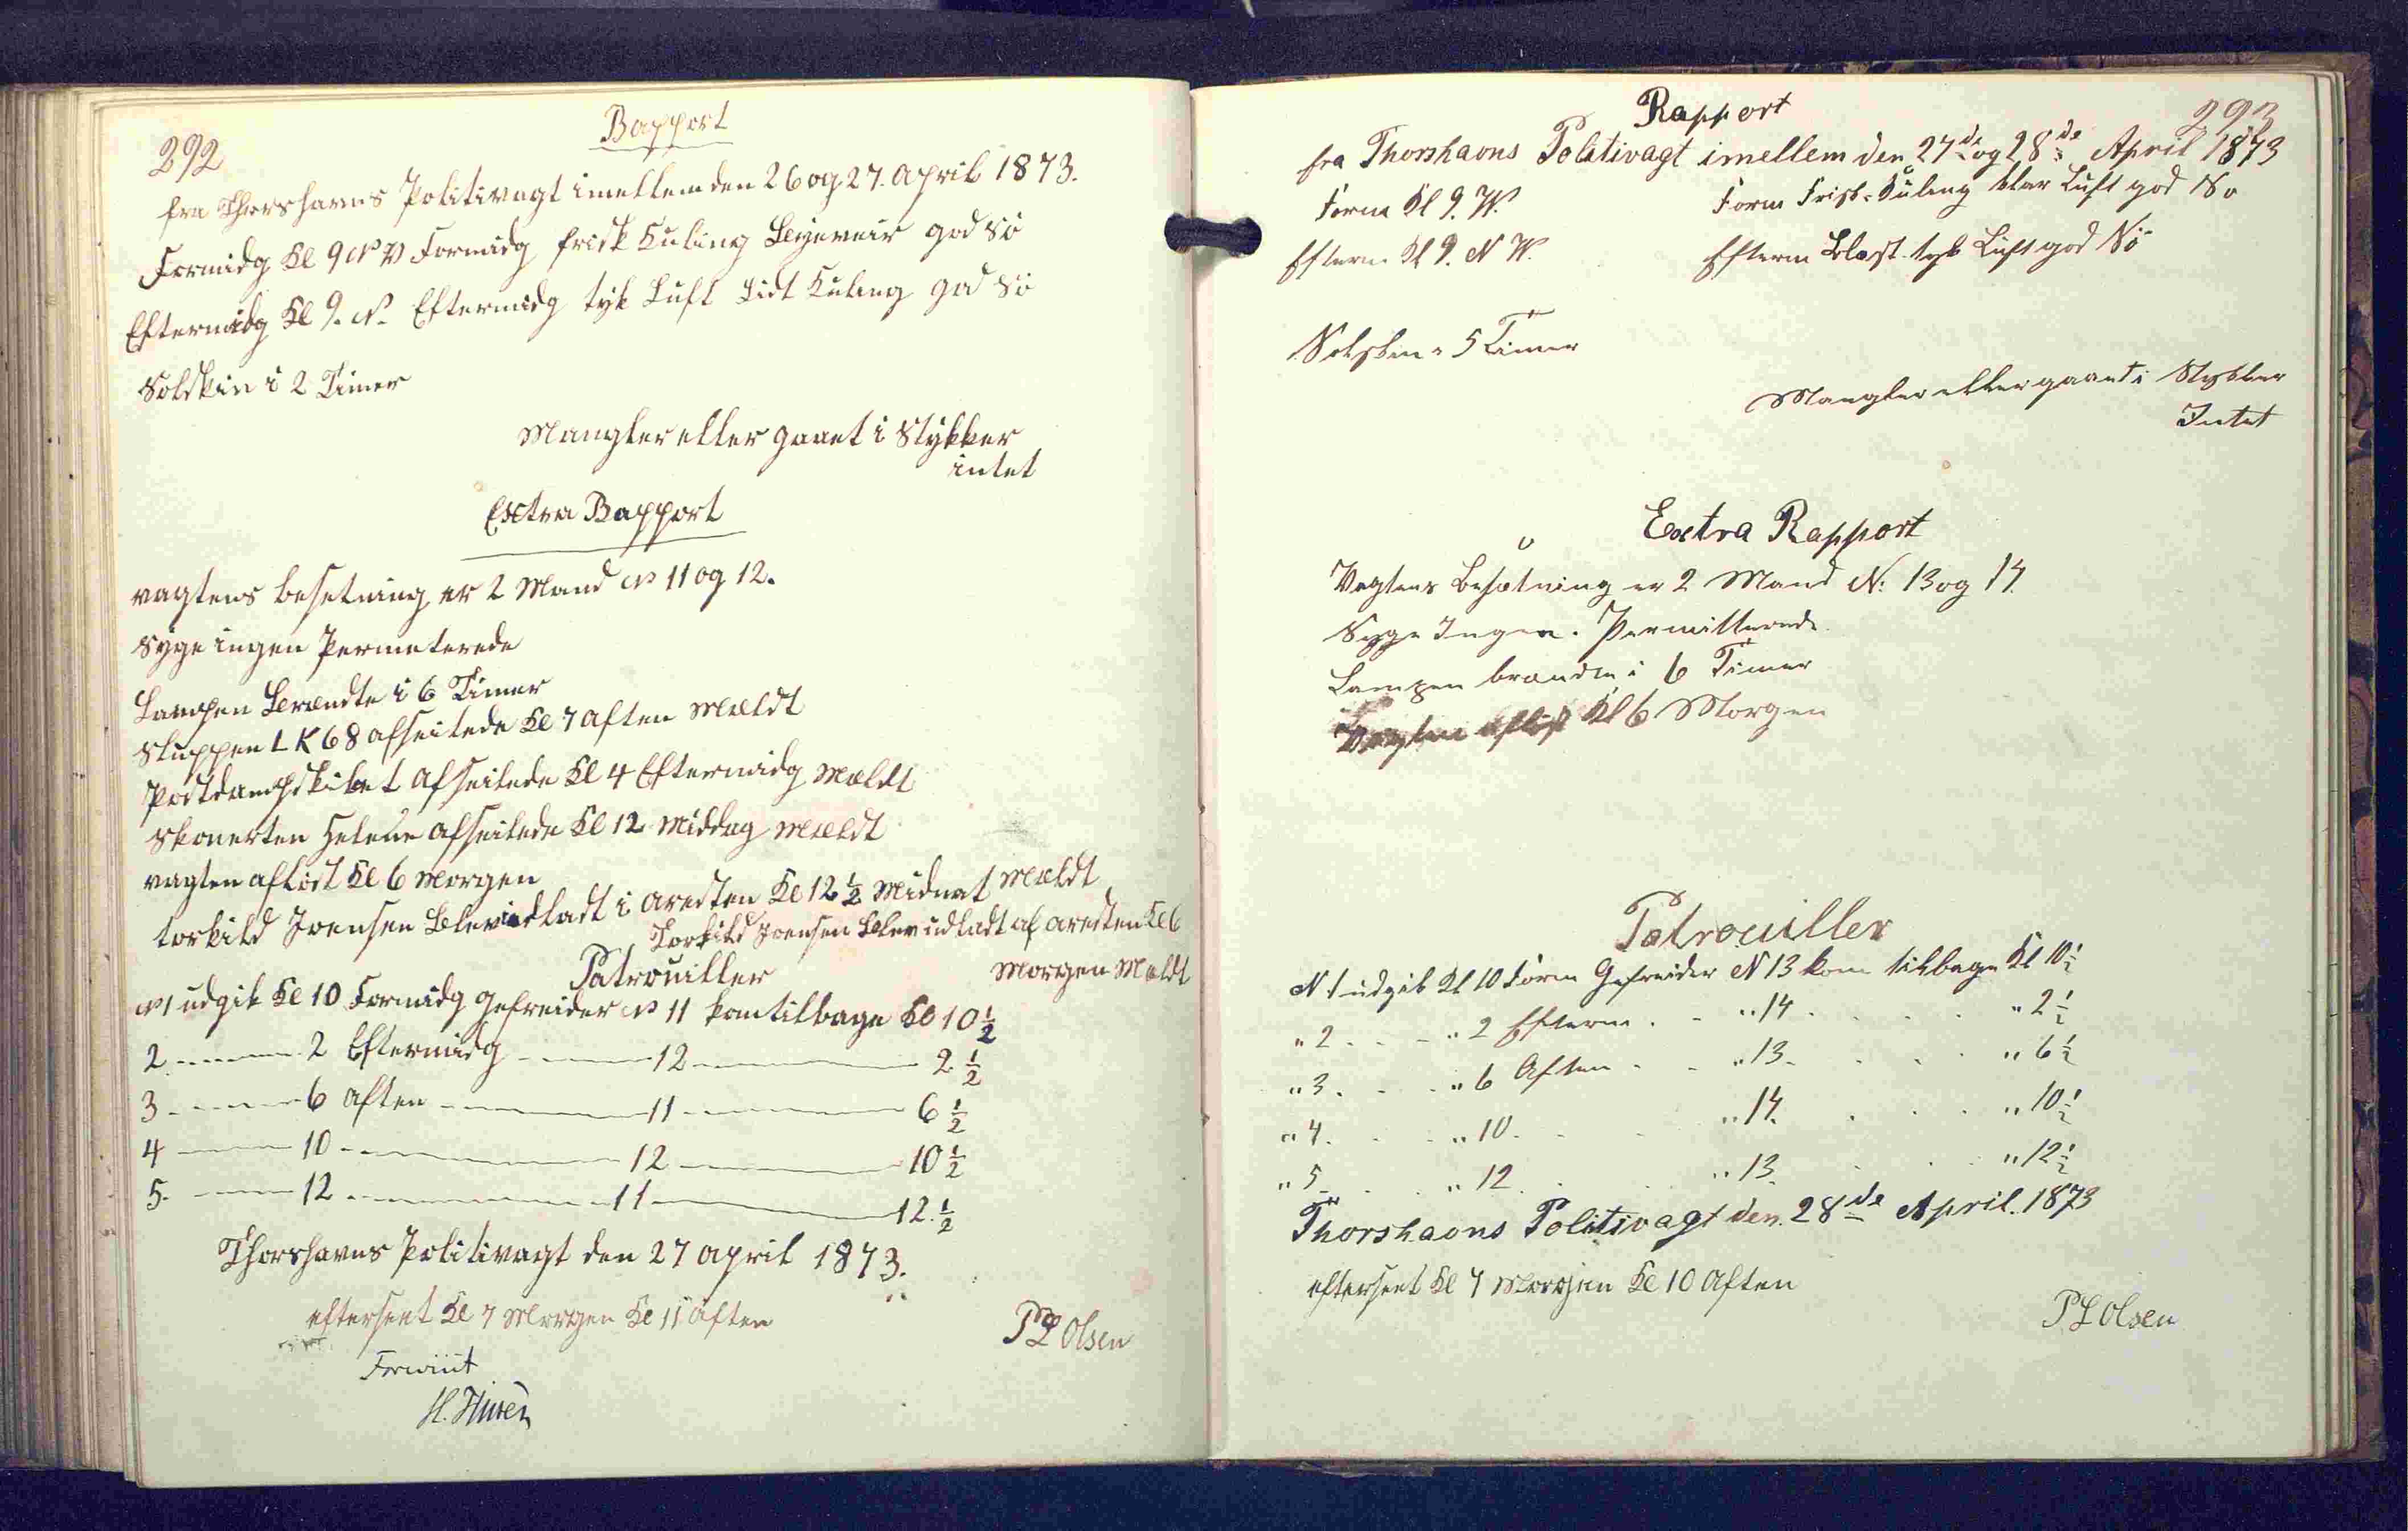 292
Rapport
fra Thorshavns Politivagt imellem den 26 og 27. April 1873.
Formidg Kl 9 N V Formidg frisk Kuling Byeveir god Sö
Eftermidg Kl 9. N. Eftermidg tyk Luft Lidt Kuling god Sö
Solskin i 2 Timer
Mangler eller gaaet i Stykker
intet
Extra Rapport
vagtens besetning er 2 Mand No 11 og 12.
Syge ingen Permeterede
Lampen Brændte i 6 Timer
Sluppen L K 68 afseilede Kl 7 Aften Mældt
Postdampskibet afseilede Kl 4 Eftermidg Mældt
Skonerten Helene afseilede Kl 12 Middag Mældt
vagten aflöst Kl 6 Morgen
torkild Joensen Blev indladt i Aresten Kl 12 1/2 Midnat Mældt
Torkild Joensen Blev udladt af Aresten Kl 6
Morgen Mældt
Patrouiller
No 1 udgik Kl 10 Formidg Gefreider No 11 kom tilbage Kl 10 1/2
2 2 Eftermidg 12 2 1/2
3 6 Aften 11 6 1/2
4 10 12 10 1/2
5 12 11 12 1/2
Thorshavns Politivagt den 27 April 1873.
efterseet Kl 7 Morgen Kl 11 Aften
P L Olsen
H.
293
Rapport
fra Thorshavns Politivagt imellem den 27de og 28de April 1873
Form Kl 9. W. Form Frisk-Kuling klar Luft god Sö
Efterm Kl 9. N W. Efterm Blæst tyk Luft god Sö
Solskin i 5 Timer
Mangler eller gaaet i Stykker
Intet
Extra Rapport
Vagtens Besætning er 2 Mand N: 13 og 14.
Syge Ingen. Permitterede.
Lampen brændte i 6 Timer
Vagten aflöst Kl 6 Morgen
Patrouiller
N 1 udgik Kl 10 Form Gefreider N 13 kom tilbage Kl 10 1/2
" 2 " 2 Efterm " 14 " 2 1/2
" 3 " 6 Aften " 13 " 6 1/2
" 4 " 10 " 14 " 10 1/2
" 5 " 12 " 13 " 12 1/2
Thorshavns Politivagt den 28de April 1873
efterseet Kl 7 Morgen Kl 10 Aften
P L Olsen